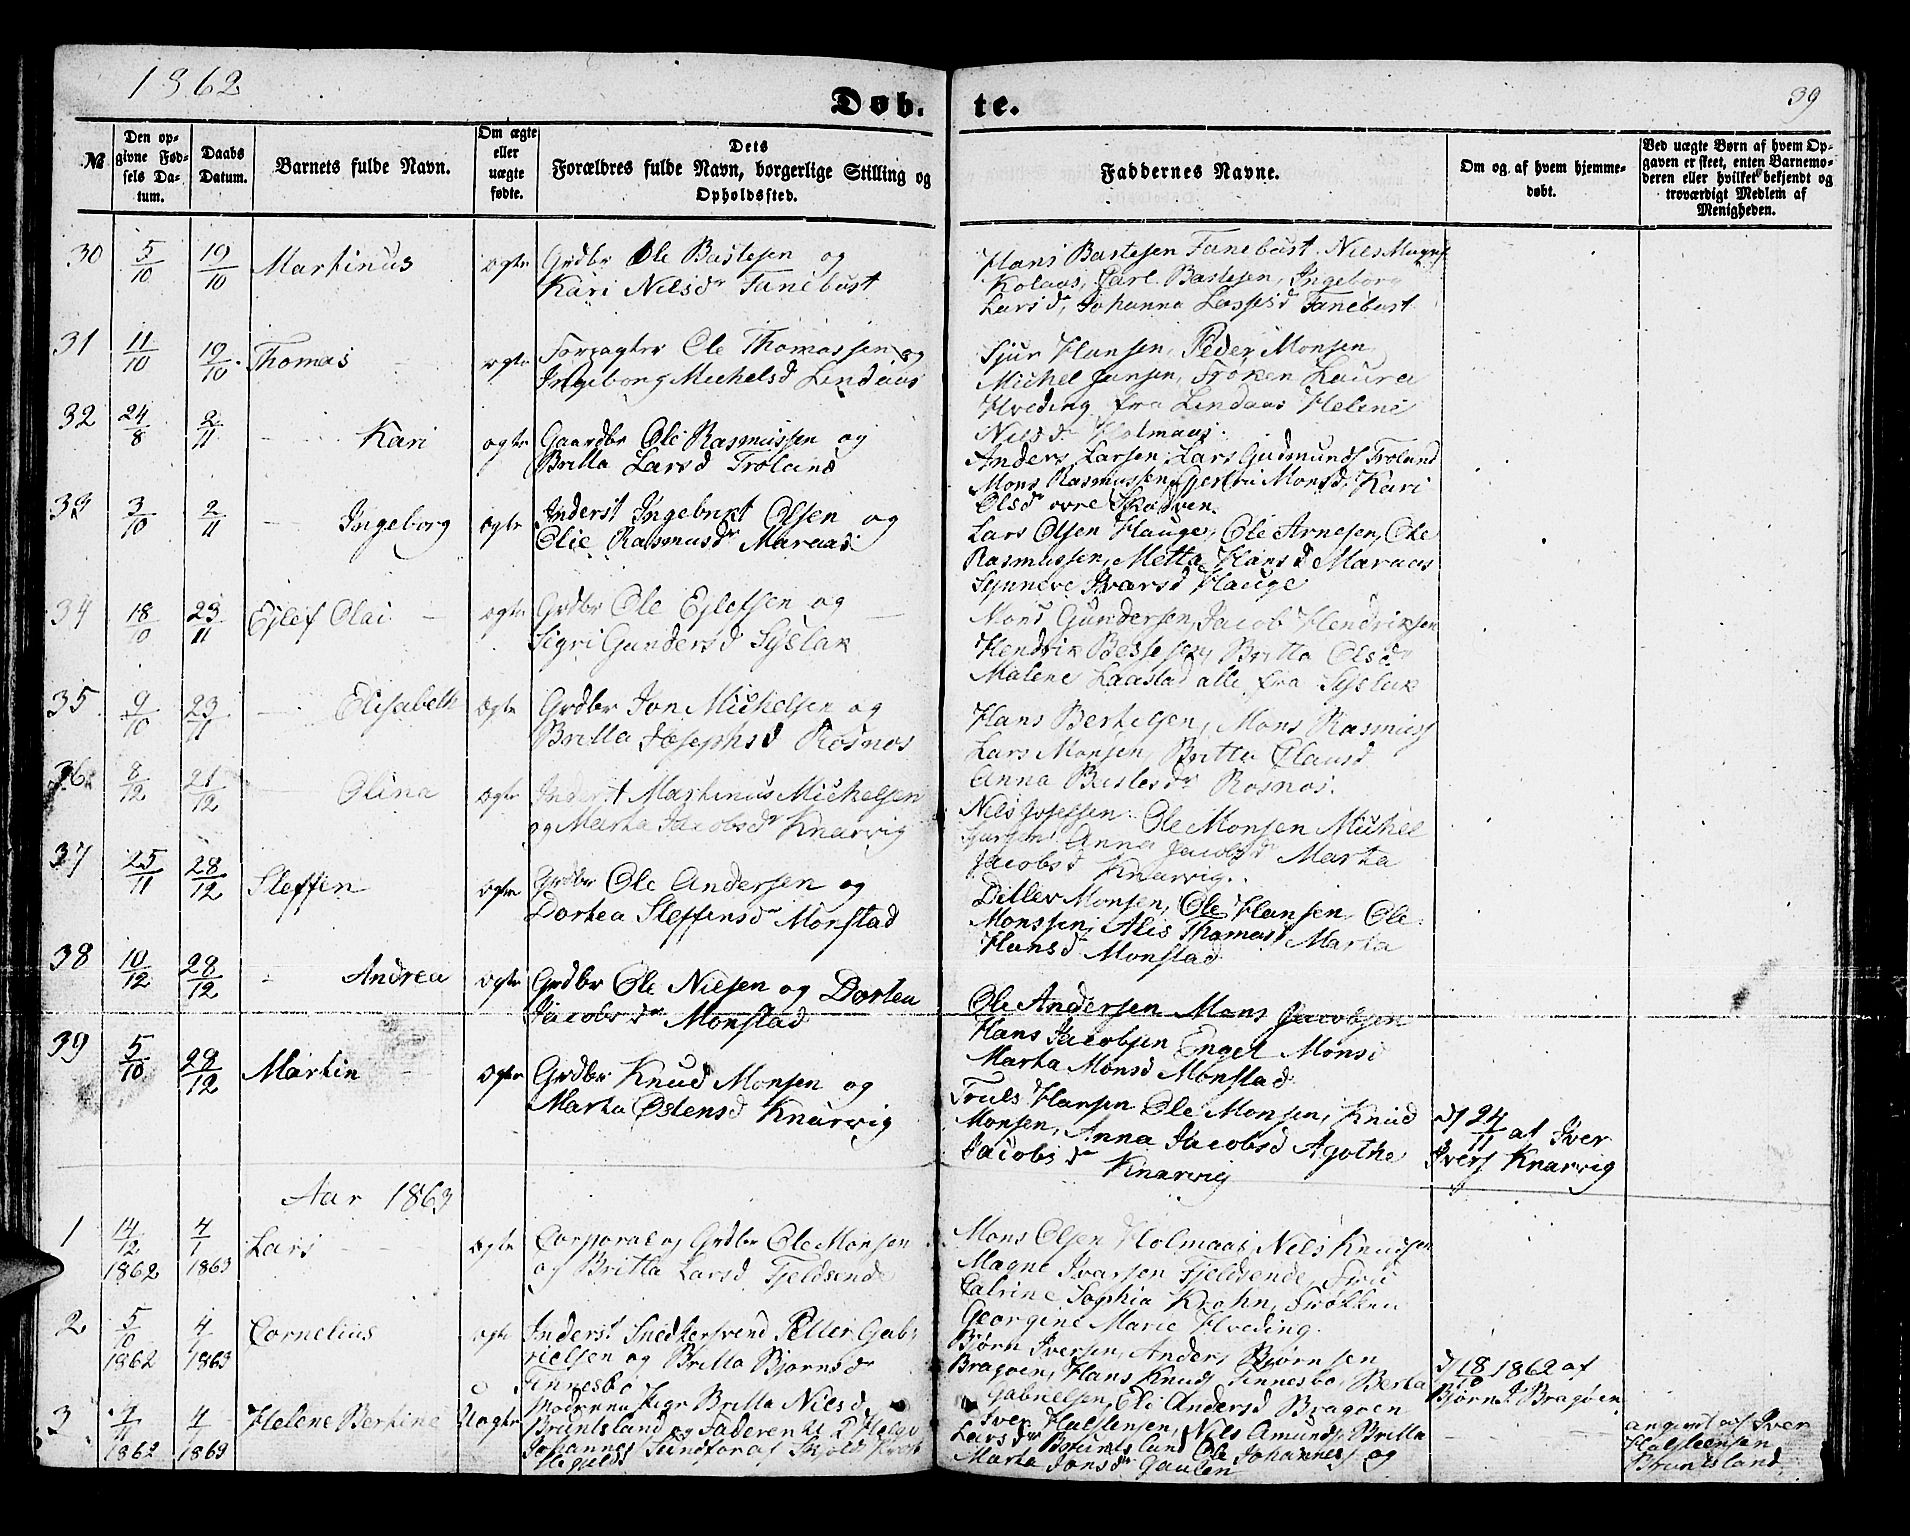 1862
Døb.
te.
39
№
Den op-
givne Fød-
sels Da-
tum.
Daabs
Datum.
Barnets fulde Navn.
Om ægte
eller
uægte
fødte.
Dets
Forældres fulde Navn, borgerlige Stilling og
Opholdssted.
Faddernes Navne.
Om og af hvem hjemme-
døbt.
Ved uægte Børn af hvem Op-
gaven er skeet, enten Barnemo-
deren eller hvilket bekjendt og
troværdigt Medlem af
Menigheden.
30 5/10 19/10 Martinus ægte Grdbr Ole Bastesen og
Kari Nilsdr Fanebust
Hans Bastesen Fanebust, Nils
Kolaas, Carl Bastesen, Ingeborg
Larsd, Johanna Fanebust
31 11/10 19/10 Thomas ægte Forpagter Ole Thomassen og
Ingeborg Michelsd Lindaas
Sjur Hansen, Peder Monsen
Michel Jansen, Frøken Laura
Hveding fra Lindaas Heline
Nilsdr Holmaas.
32 24/8 2/11 Kari ægte Gaardbr Ole Rasmussen og
Britta Larsd Troland
Anders Larsen, Lars Gudmunds Troland
Mons Rasmussen, Gjertrui Monsd, Kari
Olsdr øvre
33 3/10 2/11 Ingeborg ægte Inderst Ingebrikt Olsen og
Olie Rasmusdr Maraas
Lars Olsen Hauge, Ole Arnesen, Ole
Rasmussen, Metta Hansd Maraas
Synneve Iversd Hauge
34 18/10 23/11 Ejlef Olai ægte Grdbr Ole Ejlefsen og
Sigri Gundersd Syslak
Mons Gundersen, Jacob Hendriksen
Hendrik Bessesen, Britta Olsdr
Malene Laastad alle fra Syslak
35 9/10 23/11 Elisabeth ægte Grdbr Jon Michelsen og
Britta Josephsd Rosnes
Hans Bertelsen, Mons Rasmuss
Lars Monsen, Britta Olausd
Anna Rosnes.
36 8/12 21/12 Olina ægte Inderst Martinus Michelsen
og Marta Jacobsdr Knarvig
Nils Josefsen, Ole Monsen Michel
Sjursen, Anna Jacobsdr Marta
Jacobsd Knarvig.
37 25/11 28/12 Steffen ægte Grdbr Ole Andersen og
Dortea Steffensdr Monstad
Ditlev Monsen, Ole Hansen, Ole
Monssen, Alis Thomasd Marta
Hansdr Monstad
38 10/12 28/12 Andrea ægte Grdbr Ole Nielsen og Dortea
Jacobsdr Monstad
Ole Andersen Mons Jacobsen
Hans Jacobsen Engel Monsd
Marta Monsd Monstad
39 5/10 28/12 Martin ægte Grdbr Knud Monsen og
Marta Østensd Knarvig
Truls Hansen Ole Monsen, Knud
Monsen, Anna Jacobsd Agothe
Jacobsdr Knarvig
d 24/11 af Iver
Ivers Knarvig
Aar 1863
1 14/12 1862 4/1 1863 Lars ægte Corporal og Grdbr Ole Monsen
og Britta Larsd Fjeldsende
Mons Olsen Holmaas, Nils Knudsen
Magne Ivarsen Fjeldsende, Fru
Catrine Sophia Krohn, Frøkken
Georgine Marie Hveding.
2 5/10 1862 4/1 1863 Cornelius ægte Inderst Snedkersvend Petter Gab-
rielsen og Britta Bjørnsdr
Sinnesbø
Bjørn Iversen, Anders Bjørnsen
Bragøen, Hans Knuds Sinnesbø, Berta
Gabrielsen, Eli Andersd Bragøen
d 18/10 1862 af
Bjørn I. Bragøen
3 4/11 1862 4/1 1863 Helene Bertine Uægte Moderen Pige Britta Nilsd
Bruntsland og Faderen
Johannes
Iver Halstensen, Nils Amunds, Britta
Larsdr Bruntsland Ole Johanness og
Marta Jonsdr Gaulen
angivet af Iver
Halsteensen
Bruntsland